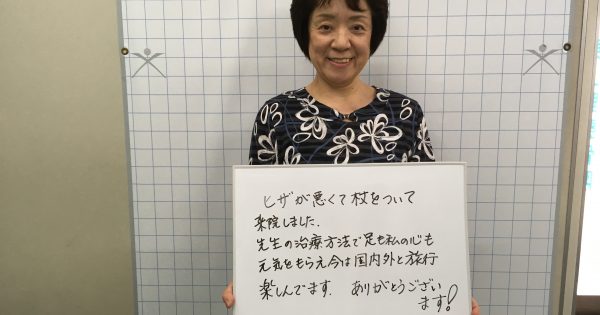 ヒザが悪くて杖をついて
来院しました.
先生の治療方法で足も私の心も
元気をもらえ今は国内外と旅行
楽しんでます. ありがとうござい
ます!